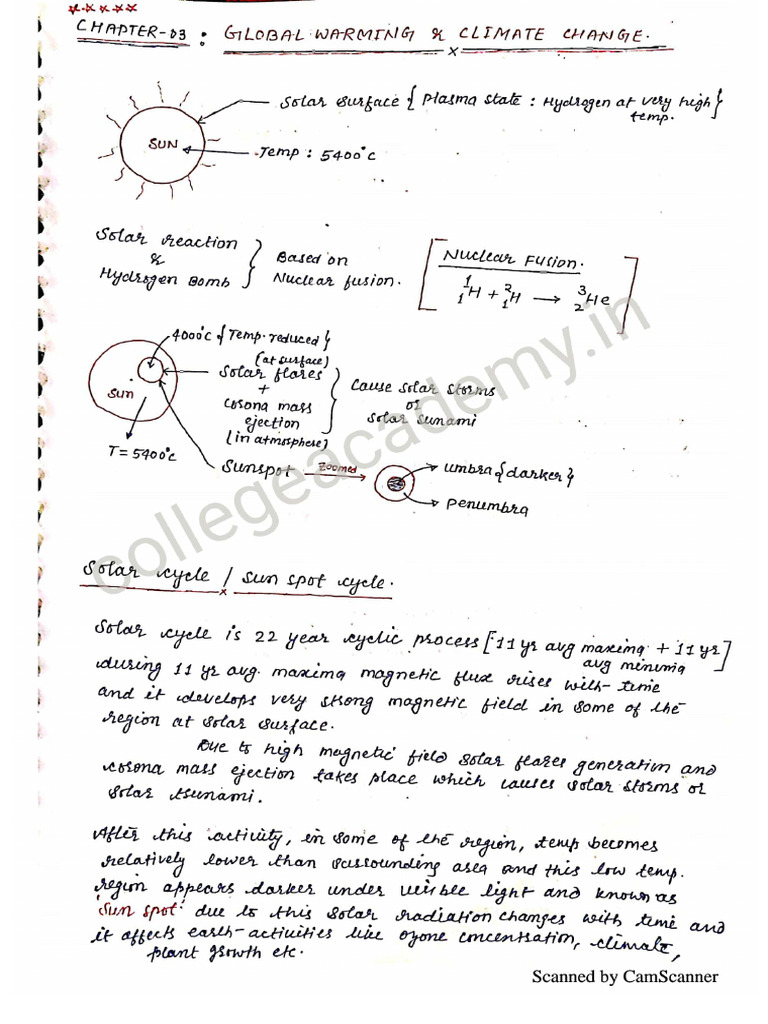 *.****
CHAPTER-03 : GLOBAL WARMING & CLIMATE CHANGE.
Solar surface { Plasma state : Hydrogen at very high temp. }
SUN
Temp : 5400°C
Solar reaction & Hydrogen Bomb } Based on Nuclear fusion.
[ Nuclear Fusion.
¹₁H + ²₁H → ³₂He ]
4000°C { Temp. reduced }
(at surface)
Solar flares
+
corona mass ejection
(in atmosphere)
} cause solar storms
or
solar sunami
Sun
T = 5400°C
Sunspot
Zoomed
umbra { darker }
penumbra
collegeacademy.in
Solar cycle / Sun spot cycle.
Solar cycle is 22 year cyclic process [11 yr avg maxima + 11 yr avg minima]
during 11 yr avg. maxima magnetic flux rises with time
and it develops very strong magnetic field in some of the
region at solar surface.
Due to high magnetic field solar flares generation and
corona mass ejection takes place which causes solar storms or
solar tsunami.
After this activity, in some of the region, temp becomes
relatively lower than surrounding area and this low temp.
region appears darker under visible light and known as
'Sun spot' due to this solar radiation changes with time and
it affects earth-activities like ozone concentration, climate,
plant growth etc.
Scanned by CamScanner